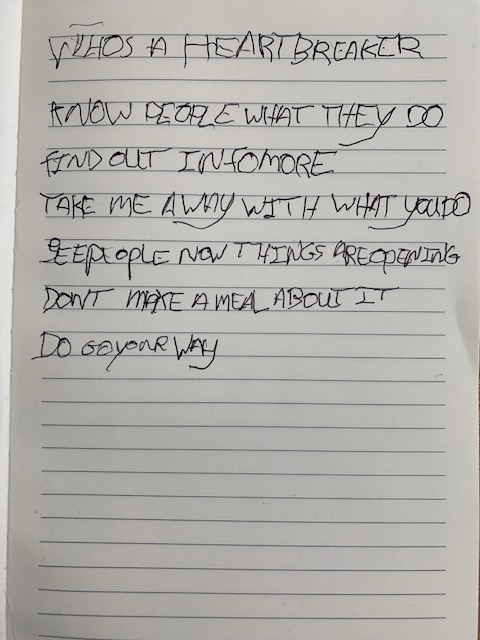 WHOS A HEARTBREAKER
KNOW PEOPLE WHAT THEY DO
FIND OUT INFOMORE
TAKE ME AWAY WITH WHAT YOU DO
SEE PEOPLE NOW THINGS ARE OPENING
DONT MAKE A MEAL ABOUT IT
DO GO YOUR WAY